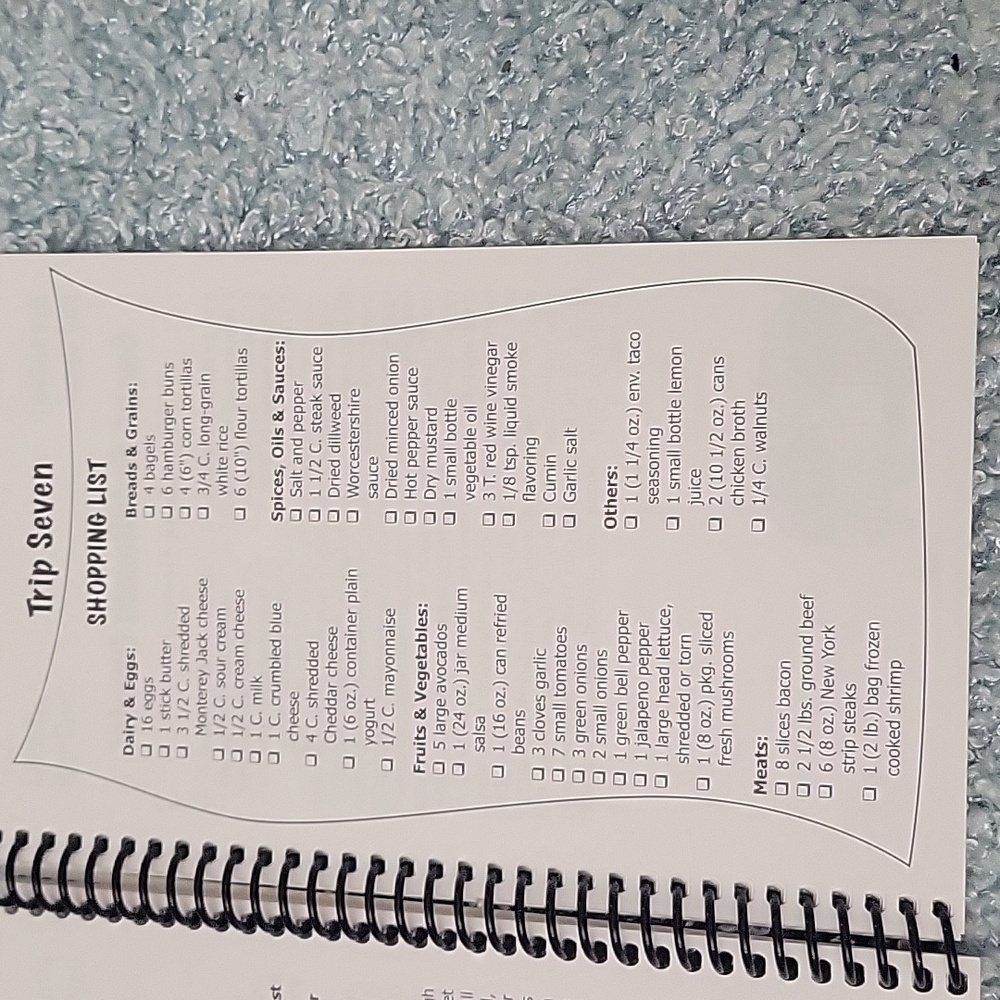 Trip Seven
SHOPPING LIST
Dairy & Eggs:
❑ 16 eggs
❑ 1 stick butter
❑ 3 1/2 C. shredded
Monterey Jack cheese
❑ 1/2 C. sour cream
❑ 1/2 C. cream cheese
❑ 1 C. milk
❑ 1 C. crumbled blue
cheese
❑ 4 C. shredded
Cheddar cheese
❑ 1 (6 oz.) container plain
yogurt
❑ 1/2 C. mayonnaise
Fruits & Vegetables:
❑ 5 large avocados
❑ 1 (24 oz.) jar medium
salsa
❑ 1 (16 oz.) can refried
beans
❑ 3 cloves garlic
❑ 7 small tomatoes
❑ 3 green onions
❑ 2 small onions
❑ 1 green bell pepper
❑ 1 jalapeno pepper
❑ 1 large head lettuce,
shredded or torn
❑ 1 (8 oz.) pkg. sliced
fresh mushrooms
Meats:
❑ 8 slices bacon
❑ 2 1/2 lbs. ground beef
❑ 6 (8 oz.) New York
strip steaks
❑ 1 (2 lb.) bag frozen
cooked shrimp
Breads & Grains:
❑ 4 bagels
❑ 6 hamburger buns
❑ 4 (6") corn tortillas
❑ 3/4 C. long-grain
white rice
❑ 6 (10") flour tortillas
Spices, Oils & Sauces:
❑ Salt and pepper
❑ 1 1/2 C. steak sauce
❑ Dried dillweed
❑ Worcestershire
sauce
❑ Dried minced onion
❑ Hot pepper sauce
❑ Dry mustard
❑ 1 small bottle
vegetable oil
❑ 3 T. red wine vinegar
❑ 1/8 tsp. liquid smoke
flavoring
❑ Cumin
❑ Garlic salt
Others:
❑ 1 (1 1/4 oz.) env. taco
seasoning
❑ 1 small bottle lemon
juice
❑ 2 (10 1/2 oz.) cans
chicken broth
❑ 1/4 C. walnuts